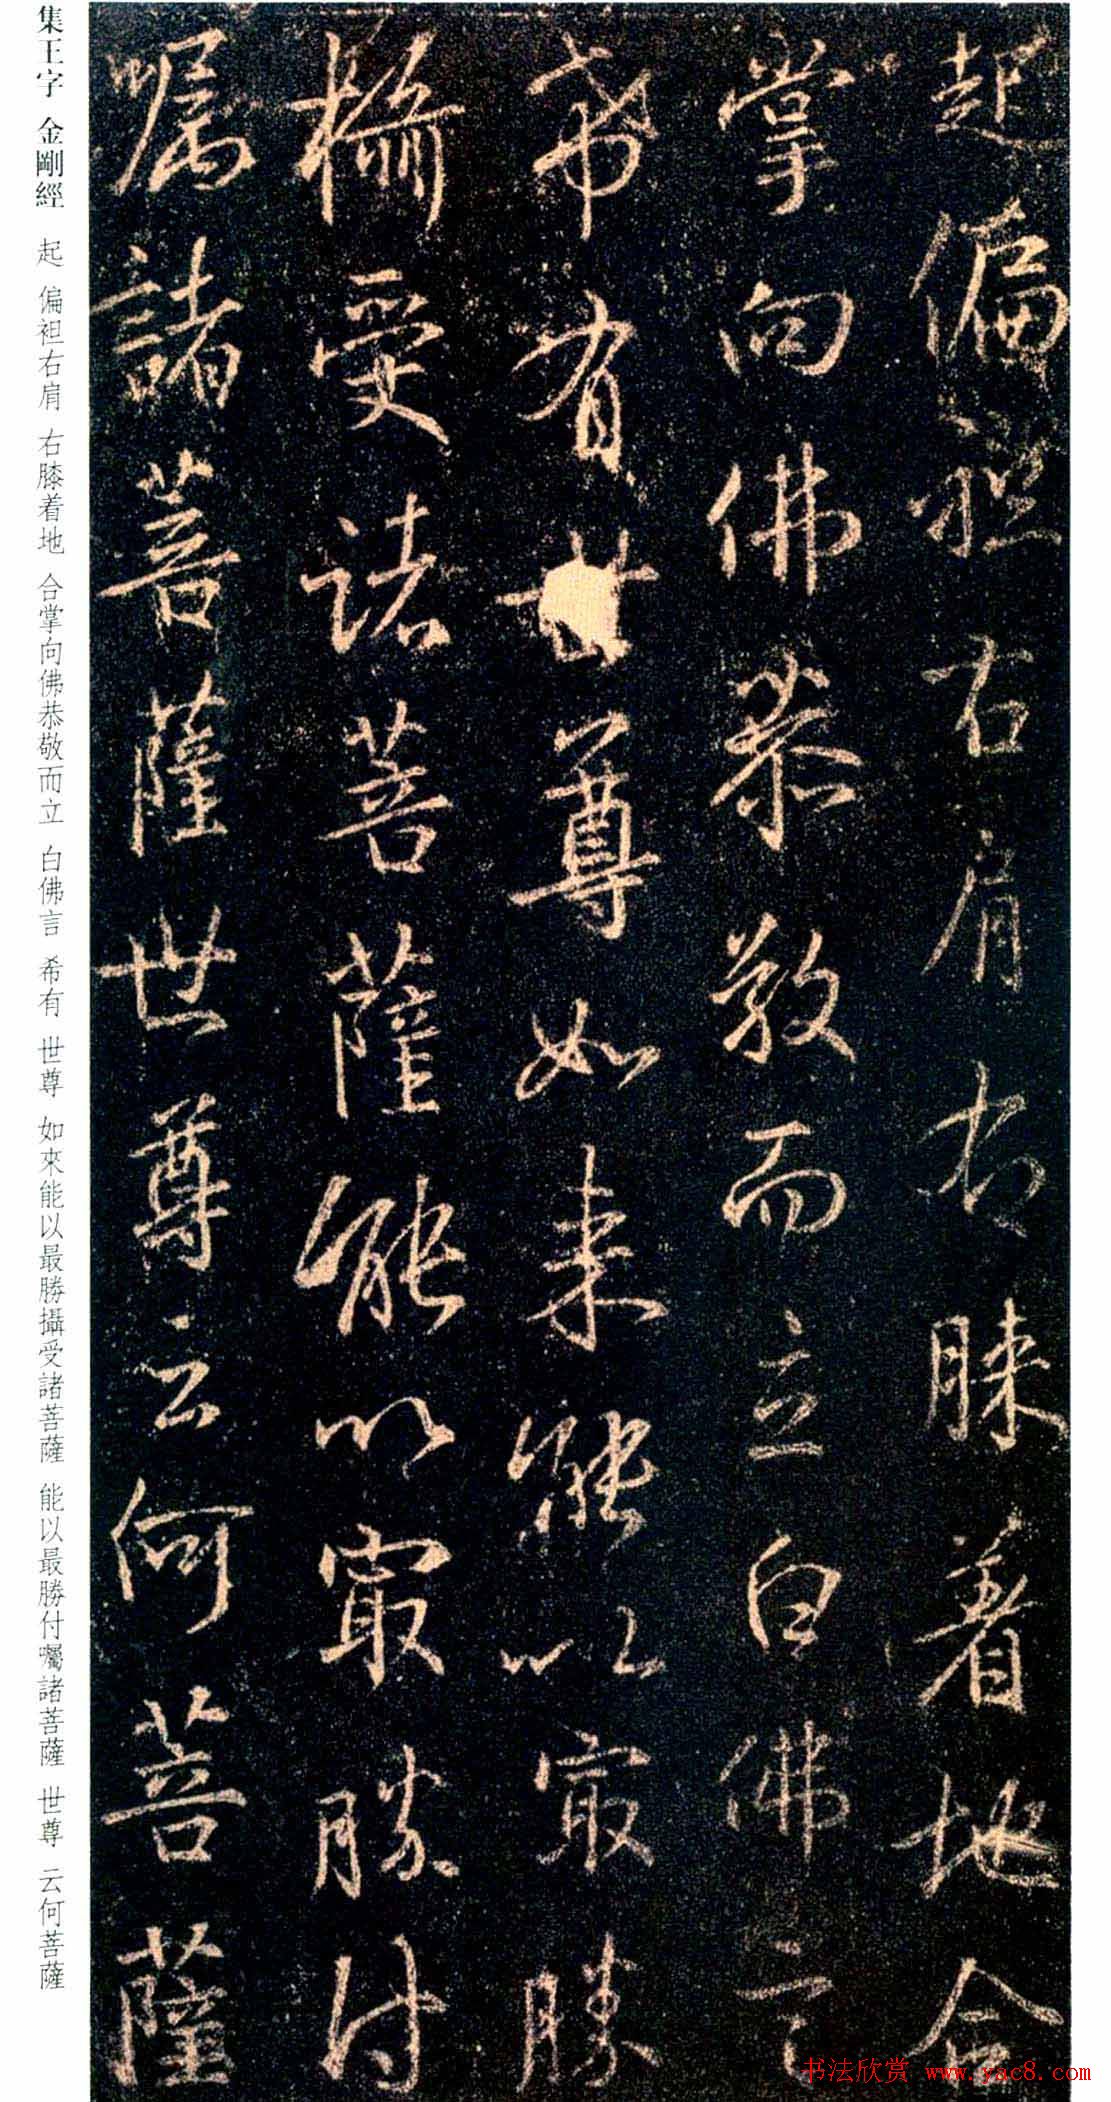 起偏袒右肩右膝着地合
掌向佛恭敬而立白佛言
希有世尊如来能以最勝
攝受諸菩薩能以最勝付
囑諸菩薩世尊云何菩薩
集王字 金剛經 起 偏袒右肩 右膝着地 合掌向佛恭敬而立 白佛言 希有 世尊 如來能以最勝攝受諸菩薩 能以最勝付囑諸菩薩 世尊 云何菩薩
书法欣赏 www.yac8.com